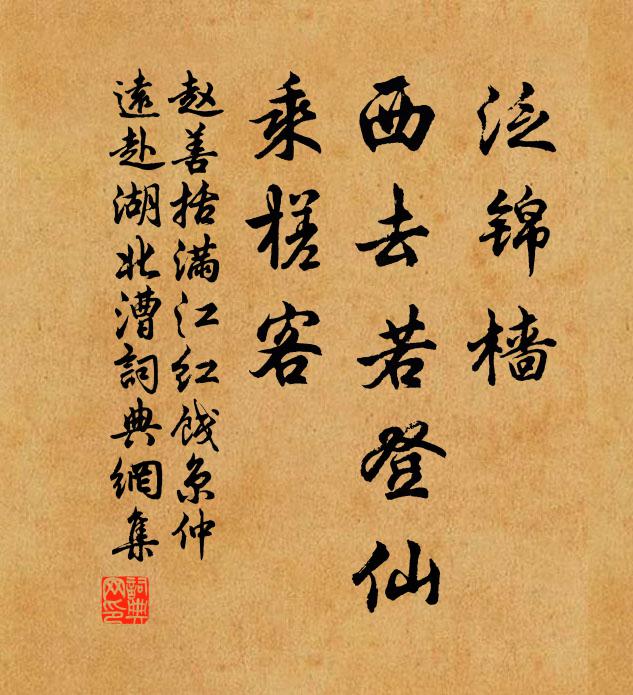 泛锦樯
西去若登仙
乘槎客
赵善括满江红饯京仲
遠赴湖北漕詞典網集
詞典网印